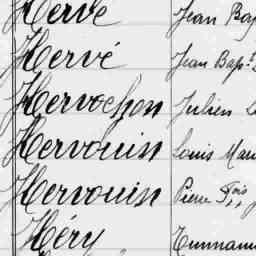 Hervé Jean Bap
Hervé Jean Bap.t
Hervochon Julien
Hervouin Louis Mari
Hervouin Pierre F.ois
Héry Emmanu